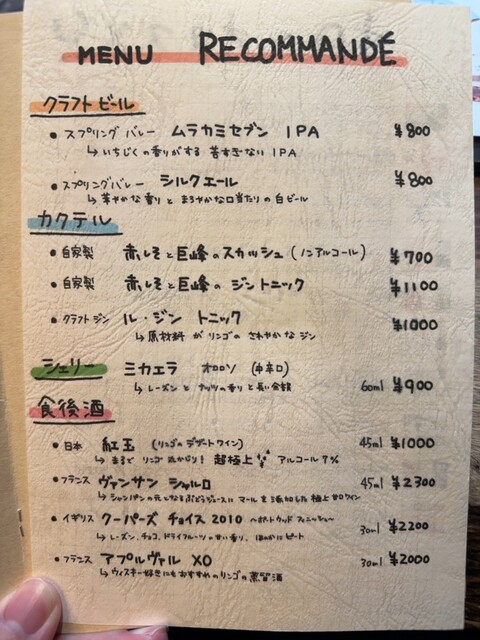 MENU RECOMMANDÉ
クラフトビール
• スプリングバレー ムラカミセブン IPA ¥800
↳ いちじくの香りがする 苦すぎない IPA
• スプリングバレー シルクエール ¥800
↳ 華やかな香りと まろやかな口当たりの白ビール
カクテル
• 自家製 赤しそと巨峰のスカッシュ (ノンアルコール) ¥700
• 自家製 赤しそと巨峰の ジントニック ¥1100
• クラフトジン ル・ジン トニック ¥1000
↳ 原材料が リンゴの さわやかなジン
シェリー ミカエラ オロロソ (中辛口) 60ml ¥900
↳ レーズンと ナッツの香りと長い余韻
食後酒
• 日本 紅玉 (リンゴのデザートワイン) 45ml ¥1000
↳ まるで リンゴ 丸かじり! 超極上 アルコール7%
• フランス ヴァンサン シャルロ 45ml ¥2300
↳ シャンパンの元になるぶどうジュースに マールを添加した極上甘口ワイン
• イギリス クーパーズ チョイス 2010 〜ポートウッド フィニッシュ〜 30ml ¥2200
↳ レーズン、チョコ、ドライフルーツの甘い香り、ほのかにピート
• フランス アプルヴァル XO 30ml ¥2000
↳ ウィスキー好きにもおすすめのリンゴの蒸留酒